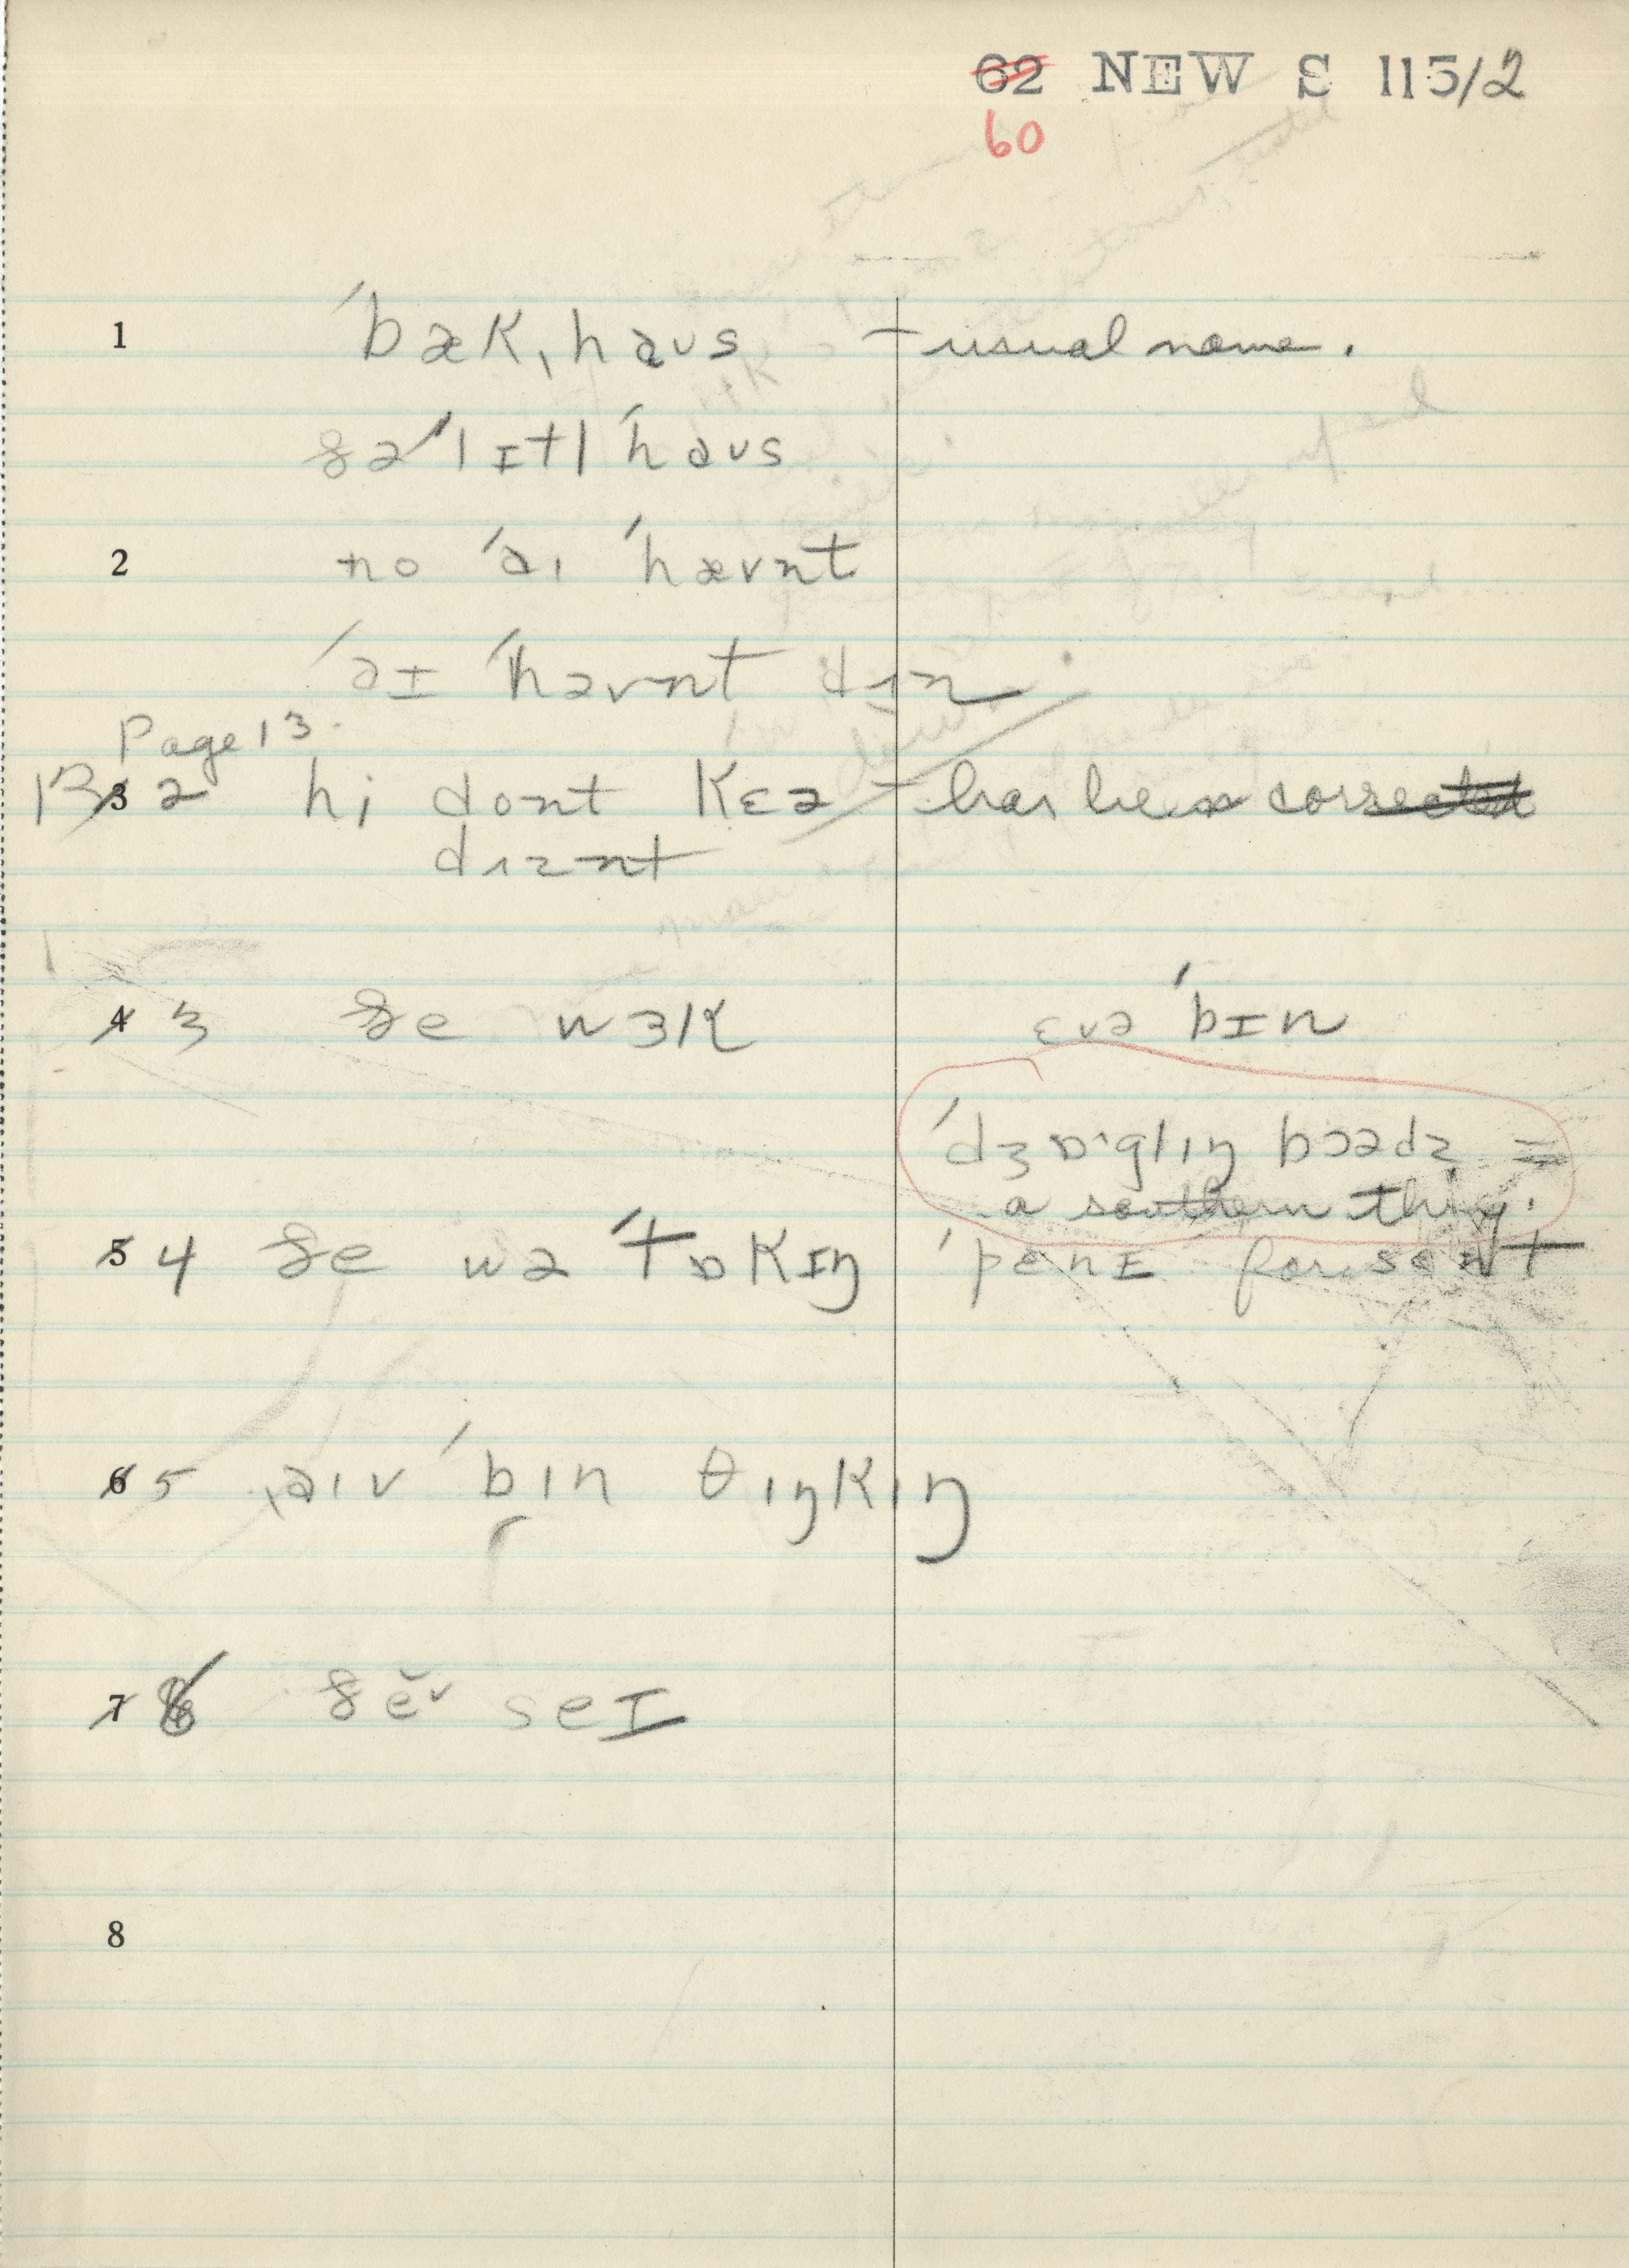 62 NEW S 115/2
60
1 ˈbækˌhaʊs – usual name.
ðə ˈlɪtl ˈhaʊs
2 no ˈaɪ ˈhævnt
ˈaɪ ˈhavnt dɪn
Page 13.
13 3 2 hi dont kɛə – has been corrected
dɪznt
4 3 ðe wɜk ɛvə ˈbɪn
ˈdʒɒˑglɪŋ bɔədz =
a southern thing.
5 4 ðe wə ˈtɒkɪŋ ˈpenɪ forsent
6 5 ˌaɪv ˈbɪn θɪŋkɪŋ
7 6 ðĕˇ seɪ
8